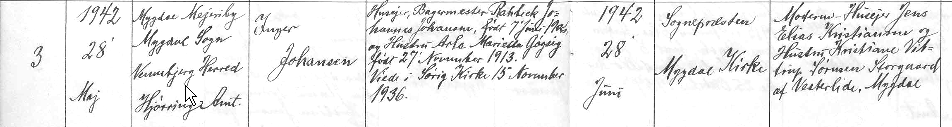 3
1942
28'
Maj
Mygdal Mejeriby
Mygdal Sogn
Vennebjerg Herred
Hjørring Amt.
Inger
Johansen
Husejer, Bagermester
Johannes Johansen, født 7 Juni
og Hustru Marietta
født 27 November 1913.
Viede i Sørig Kirke 15 November
1936.
1942
28'
Juni
Sognepræsten
Mygdal Kirke
Moderen Husejer Jens
Elias Kristiansen og
Hustru Kristiane
Sørensen
af Vesterlide, Mygdal